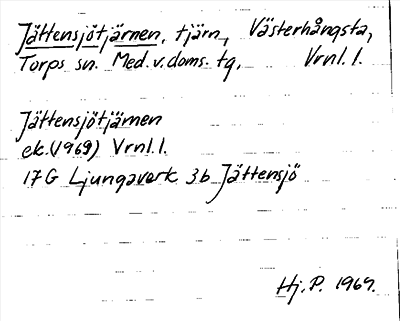 Jättensjötjärnen, tjärn, Västerhångsta,
Torps sn. Med.v.doms. tg, Vrnl. l.
Jättensjötjärnen
ek.(1969) Vrnl. l.
17G Ljungaverk 3b Jättensjö
Hj. P. 1969.